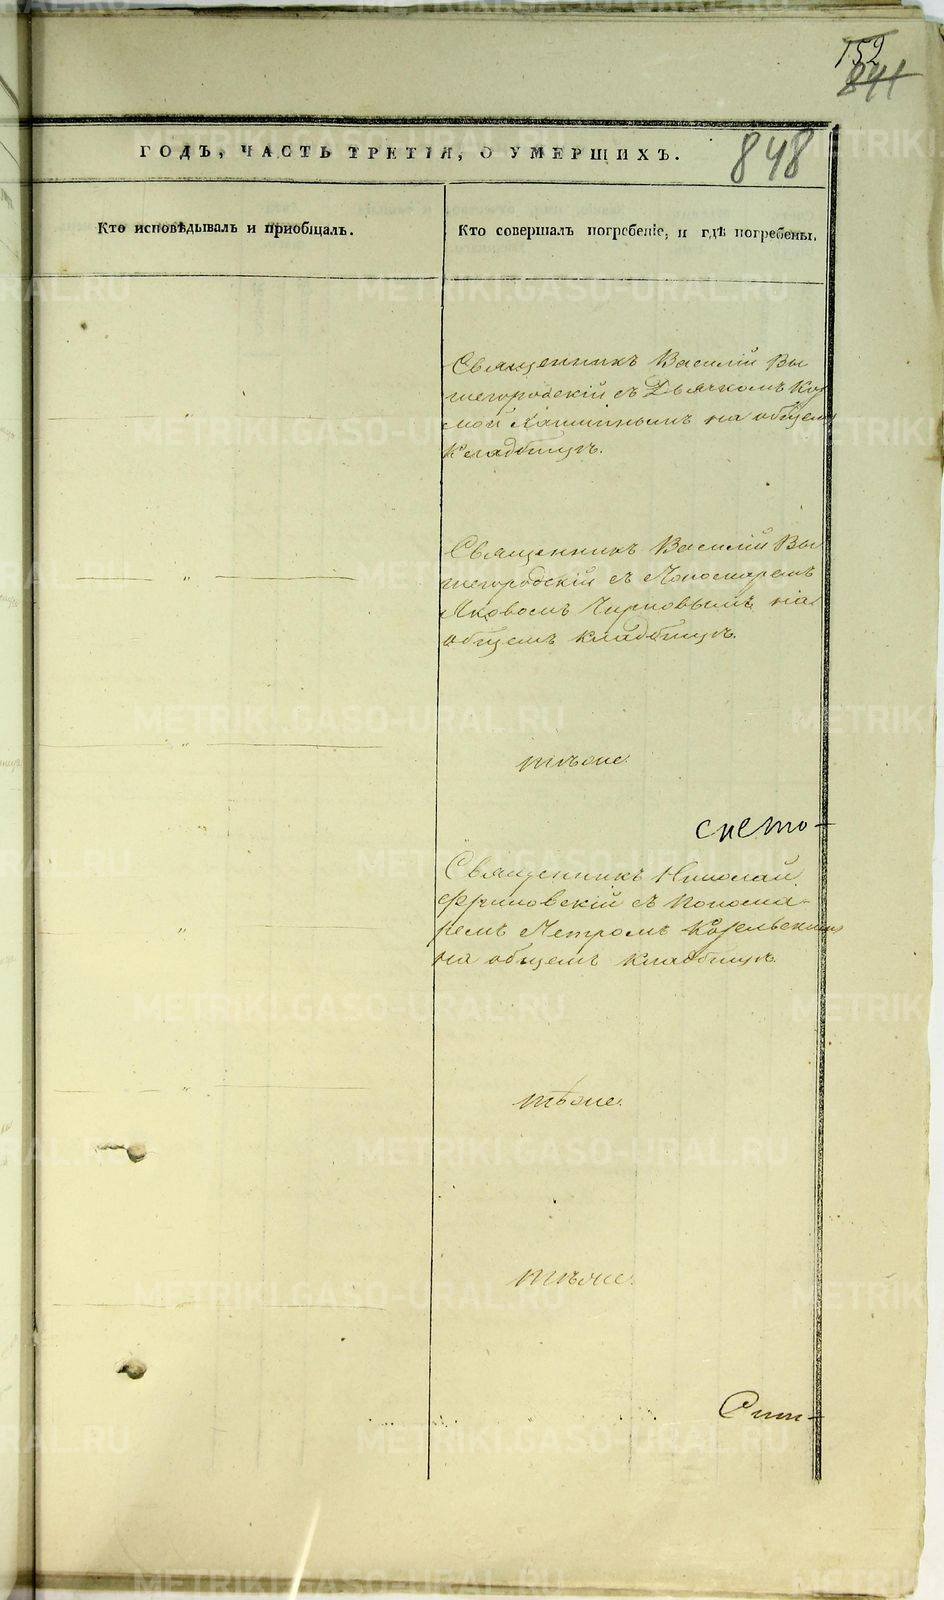 152
841
848
ГОДЪ, ЧАСТЬ ТРЕТІЯ, О УМЕРШИХЪ.
Кто исповѣдывалъ и пріобщалъ.
Кто совершалъ погребеніе, и гдѣ погребены.
Священникъ Василій Вы
шегородскій съ Дьячкомъ Коз
мой на общемъ
кладбищѣ.
Священникъ Василій Вы
шегородскій съ Пономаремъ
Яковомъ Чирковымъ на
общемъ кладбищѣ.
тѣоже.
Священникъ Николай
съ Понома-
ремъ Петромъ Козельскимъ
на общемъ кладбищѣ.
тѣоже.
тѣоже.
METRIKI.GASO-URAL.RU